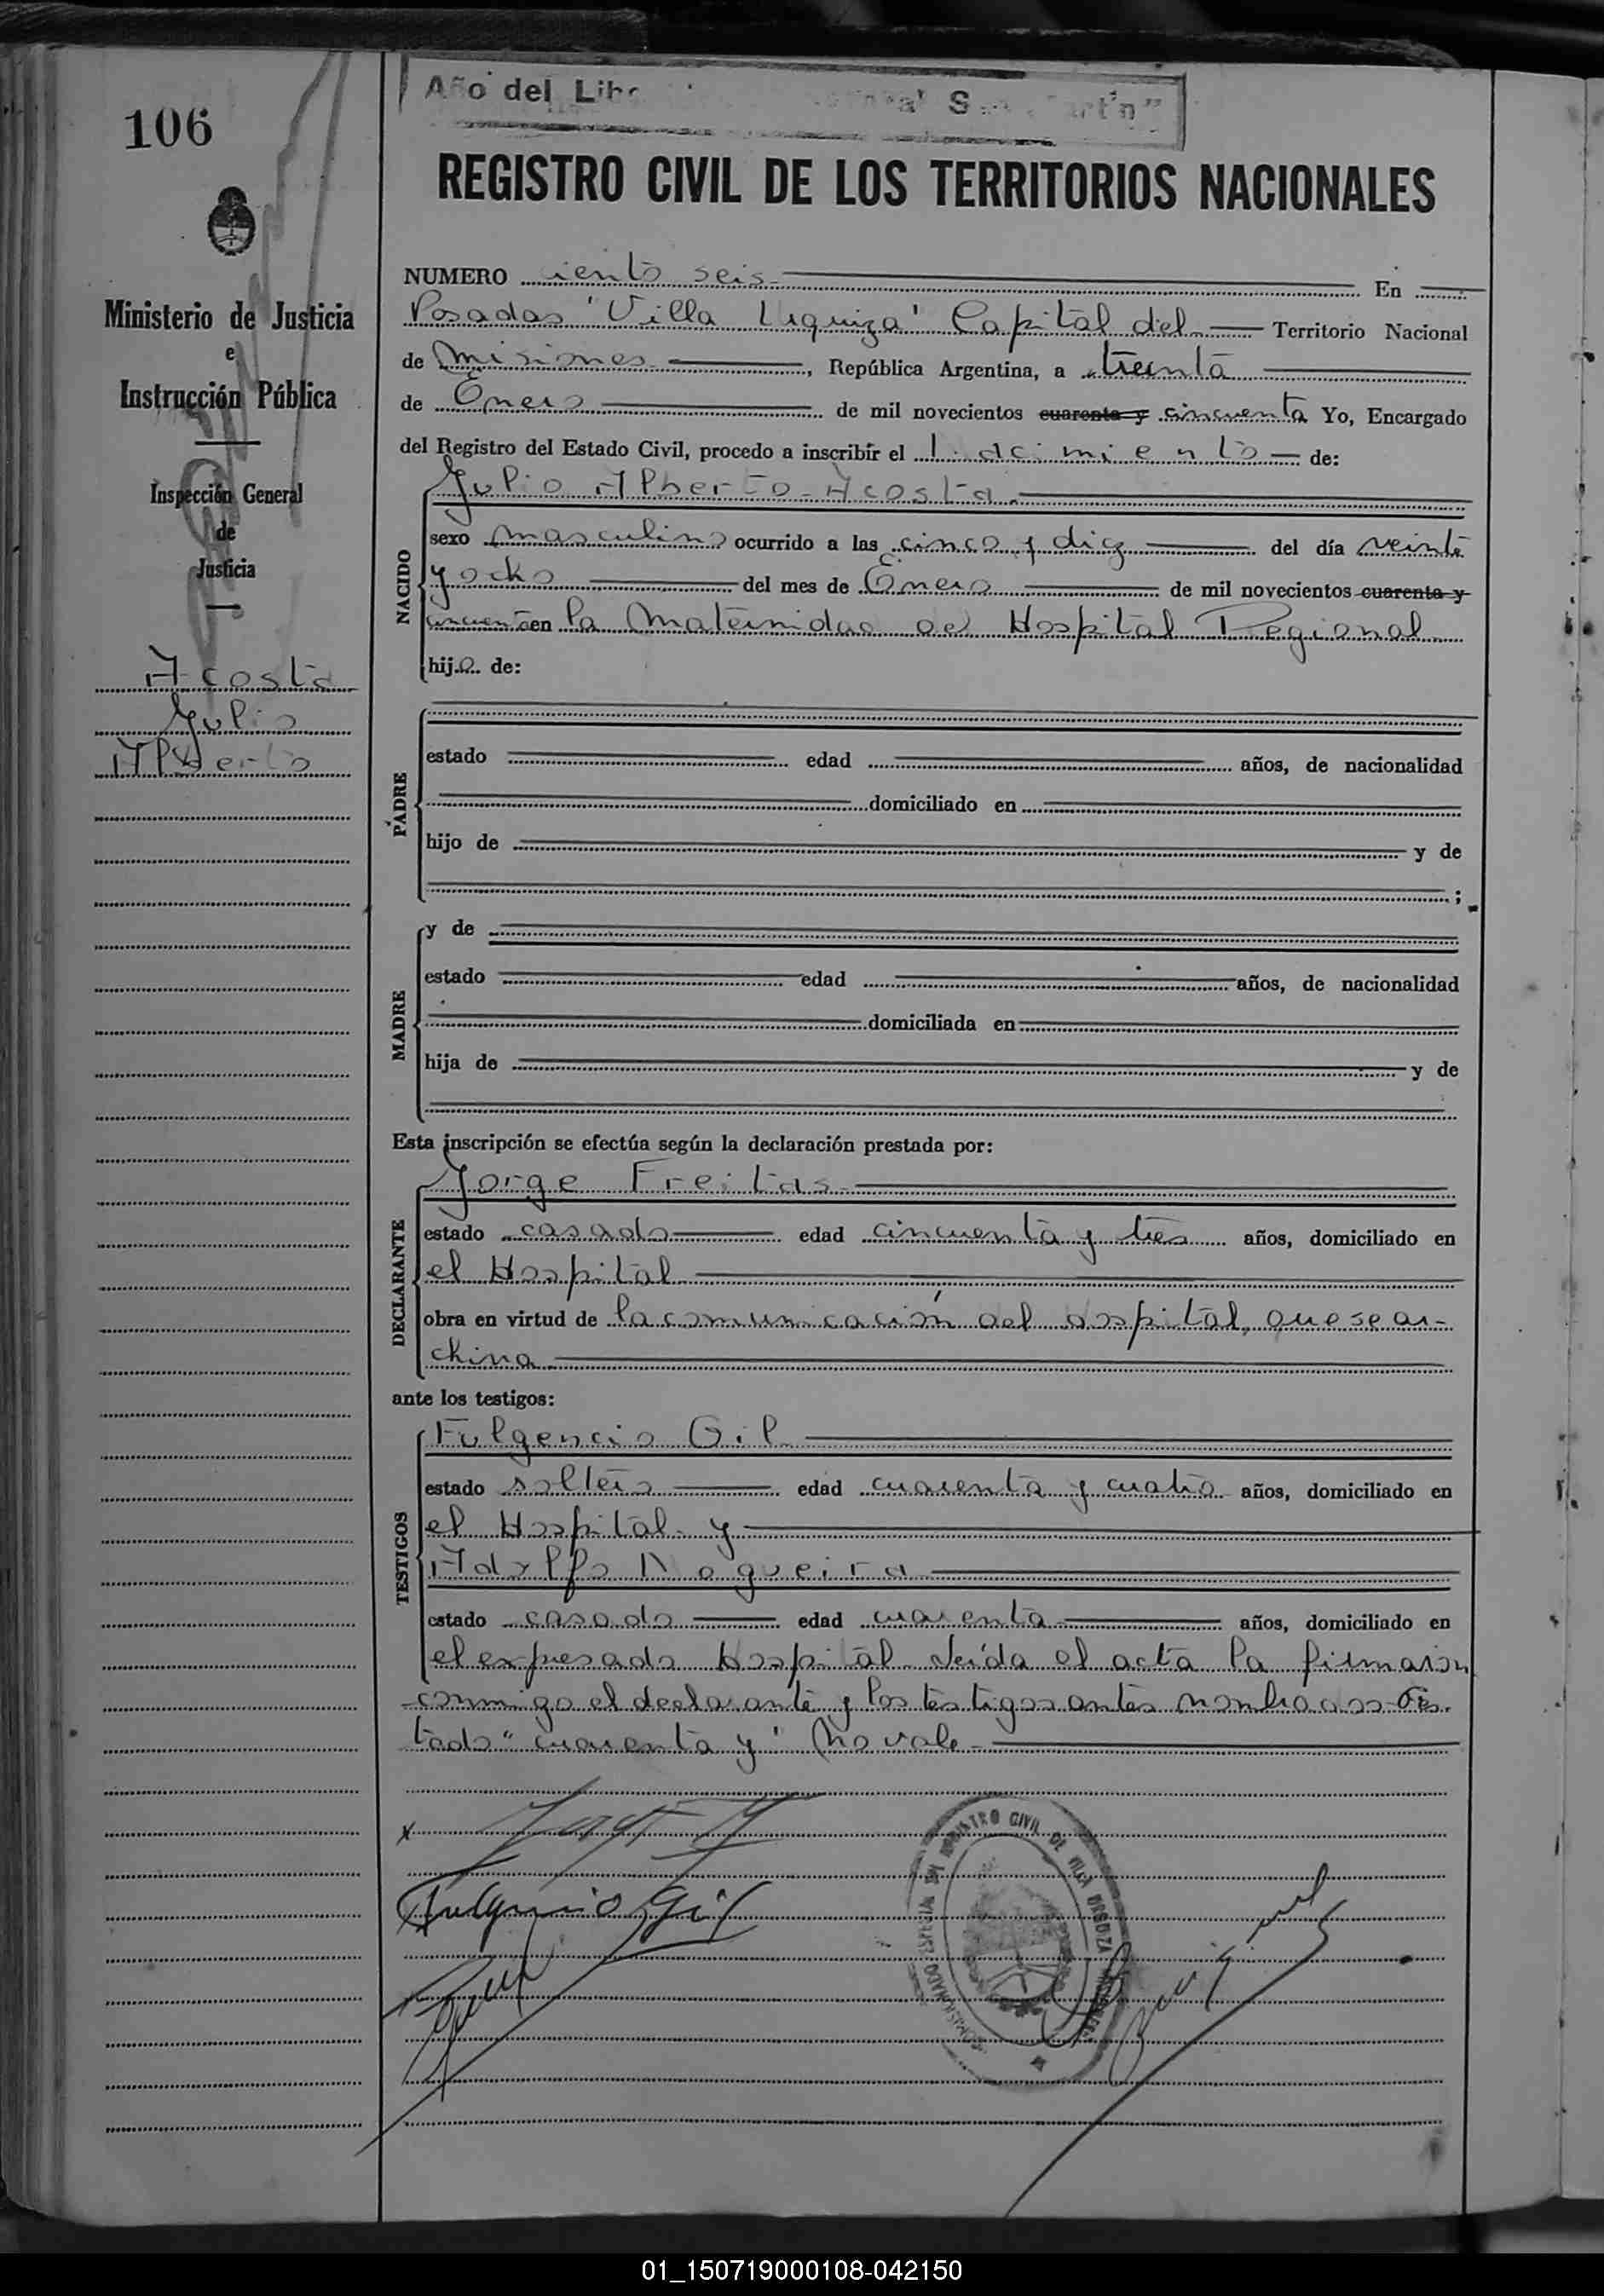 Año del Lib
106
REGISTRO CIVIL DE LOS TERRITORIOS NACIONALES
Ministerio de Justicia
e
Instrucción Pública
Inspección General
de
Justicia
Acosta
Julio
Alberto
NUMERO ciento seis En
Posadas "Villa Urquiza" Capital del Territorio Nacional
de Misiones, República Argentina, a treinta
de Enero de mil novecientos cuarenta y cincuenta Yo, Encargado
del Registro del Estado Civil, procedo a inscribir el Nacimiento de:
Julio Alberto Acosta
NACIDO
sexo masculino ocurrido a las cinco y diez del día veinte
y ocho del mes de Enero de mil novecientos cuarenta y
cincuenta en la Maternidad del Hospital Regional
hijo de:
PADRE
estado edad años, de nacionalidad
domiciliado en
hijo de y de
;
MADRE
y de
estado edad años, de nacionalidad
domiciliada en
hija de y de
Esta inscripción se efectúa según la declaración prestada por:
DECLARANTE
Jorge Freitas
estado casado edad cincuenta y tres años, domiciliado en
el Hospital
obra en virtud de la comunicación del Hospital, que se ar-
chiva
ante los testigos:
TESTIGOS
Fulgencio Gil
estado soltero edad cuarenta y cuatro años, domiciliado en
el Hospital y
Adolfo Nogueira
estado casado edad cuarenta años, domiciliado en
el expresado Hospital. Leída el acta la firmaron
conmigo el declarante y los testigos antes nombrados Tes-
tado "cuarenta y" No vale
Fulgencio Gil
REGISTRO CIVIL DE VILLA URQUIZA
01_150719000108-042150